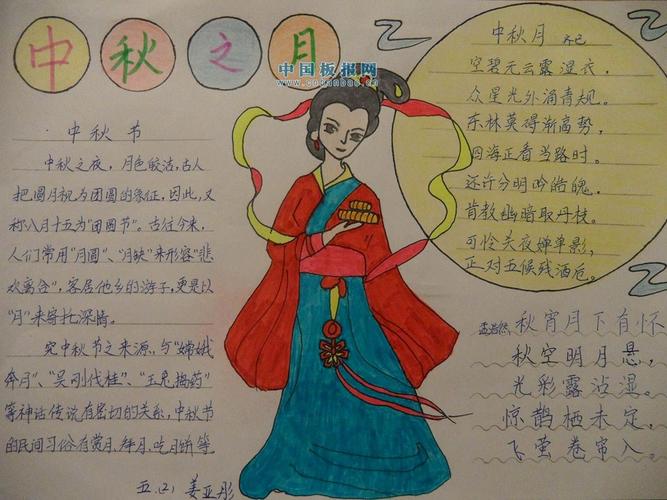 中秋之月
中国板报网
www.cnbanbao.com
中秋节
中秋之夜，月色皎洁，古人
把圆月视为团圆的象征，因此，又
称八月十五为“团圆节”。古往今来，
人们常用“月圆”、“月缺”来形容“悲
欢离合”，客居他乡的游子，更是以
“月”来寄托深情。
究中秋节之来源，与“嫦娥
奔月”、“吴刚伐桂”、“玉兔捣药”
等神话传说有密切的关系，中秋节
的民间习俗有赏月、拜月、吃月饼等
五(2) 姜亚彤
中秋月 齐己
空碧元云露湿衣，
众星光外涌青规。
东林莫碍渐高势，
四海正看当路时。
还许分明吟皓魄，
肯教幽暗取丹枝。
可怜关夜婵单影，
正对五候残酒卮。
孟浩然 秋宵月下有怀
秋空明月悬，
光彩露沾湿。
惊鹊栖未定，
飞萤卷帘入。